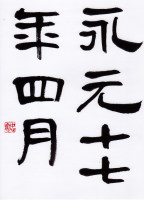 永元十七
年四月